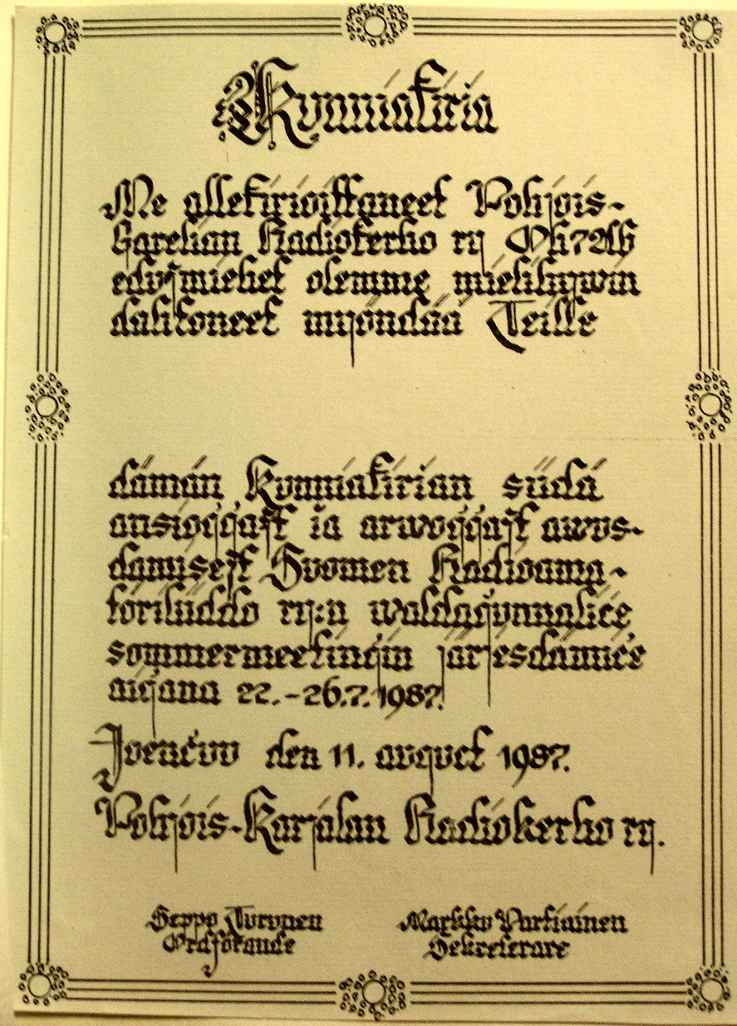 Kvnniakiria
Me allekirioittaneet Pohjois-
Garelian Radiokerho rÿ Oh7ab
edvsmiehet olemme mielihÿwin
dahtoneet mÿöndää Teille
dämän Kvnniakirian siidä
ansioqqast ia arwoqqast awvs-
damisest Svomen Radioama-
töriliiddo rÿ:n waldaqvnnalice
sommermeetinqin järjesdamice
aiqana 22.-26.7.1987.
Joencvv den 11. avqvct 1987.
Pohjois-Karjalan Radiokerho rÿ.
Seppo Tvrvnen Markkv Partiainen
Ordförande Sekreterare